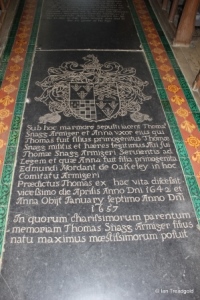 Sub hoc marmore sepulti iacent Thomas
Snagg Armiger et Anna vxor eius qui
Thomas fuit filius primogenitus Thomæ
Snagg militis et hæres legitimus An: fil:
Thomæ Snagg Armigeri Servientis ad
Legem et quæ Anna fuit filia primogenita
Edmundi Mordant de OaKeley in hoc
Comitatu Armigeri
Prædictus Thomas ex hac vita discessit
vicessimo die Aprilis Anno Dni 1642 et
Anna Obijt January septimo Anno Dni
1657
In quorum charissimorum parentum
memoriam Thomas Snagg Armiger filius
natu maximus mœstissimorum posuit
© Ian Treadgold